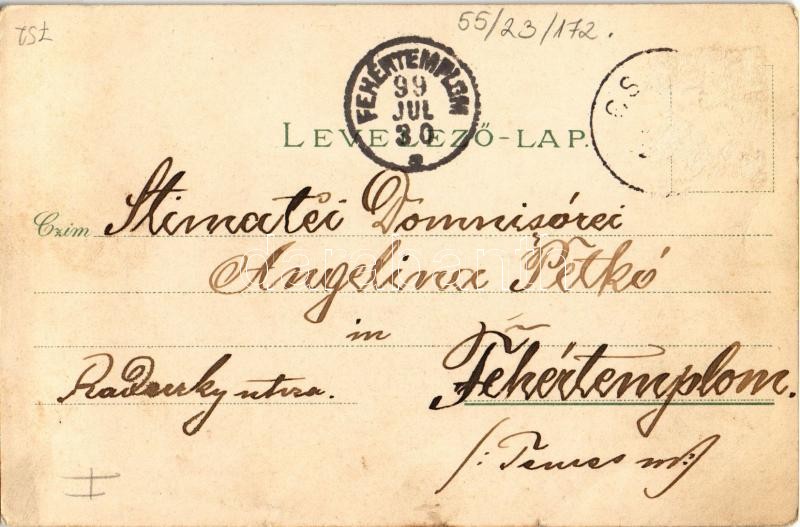 TSL
55/23/172.
FEHÉRTEMPLOM
99
JUL
30
a
CS
LEVELEZŐ-LAP.
Czim Stimatei Domnisórei
Angelina Petkó
in
Fehértemplom.
utcza.
/: Temes m:/